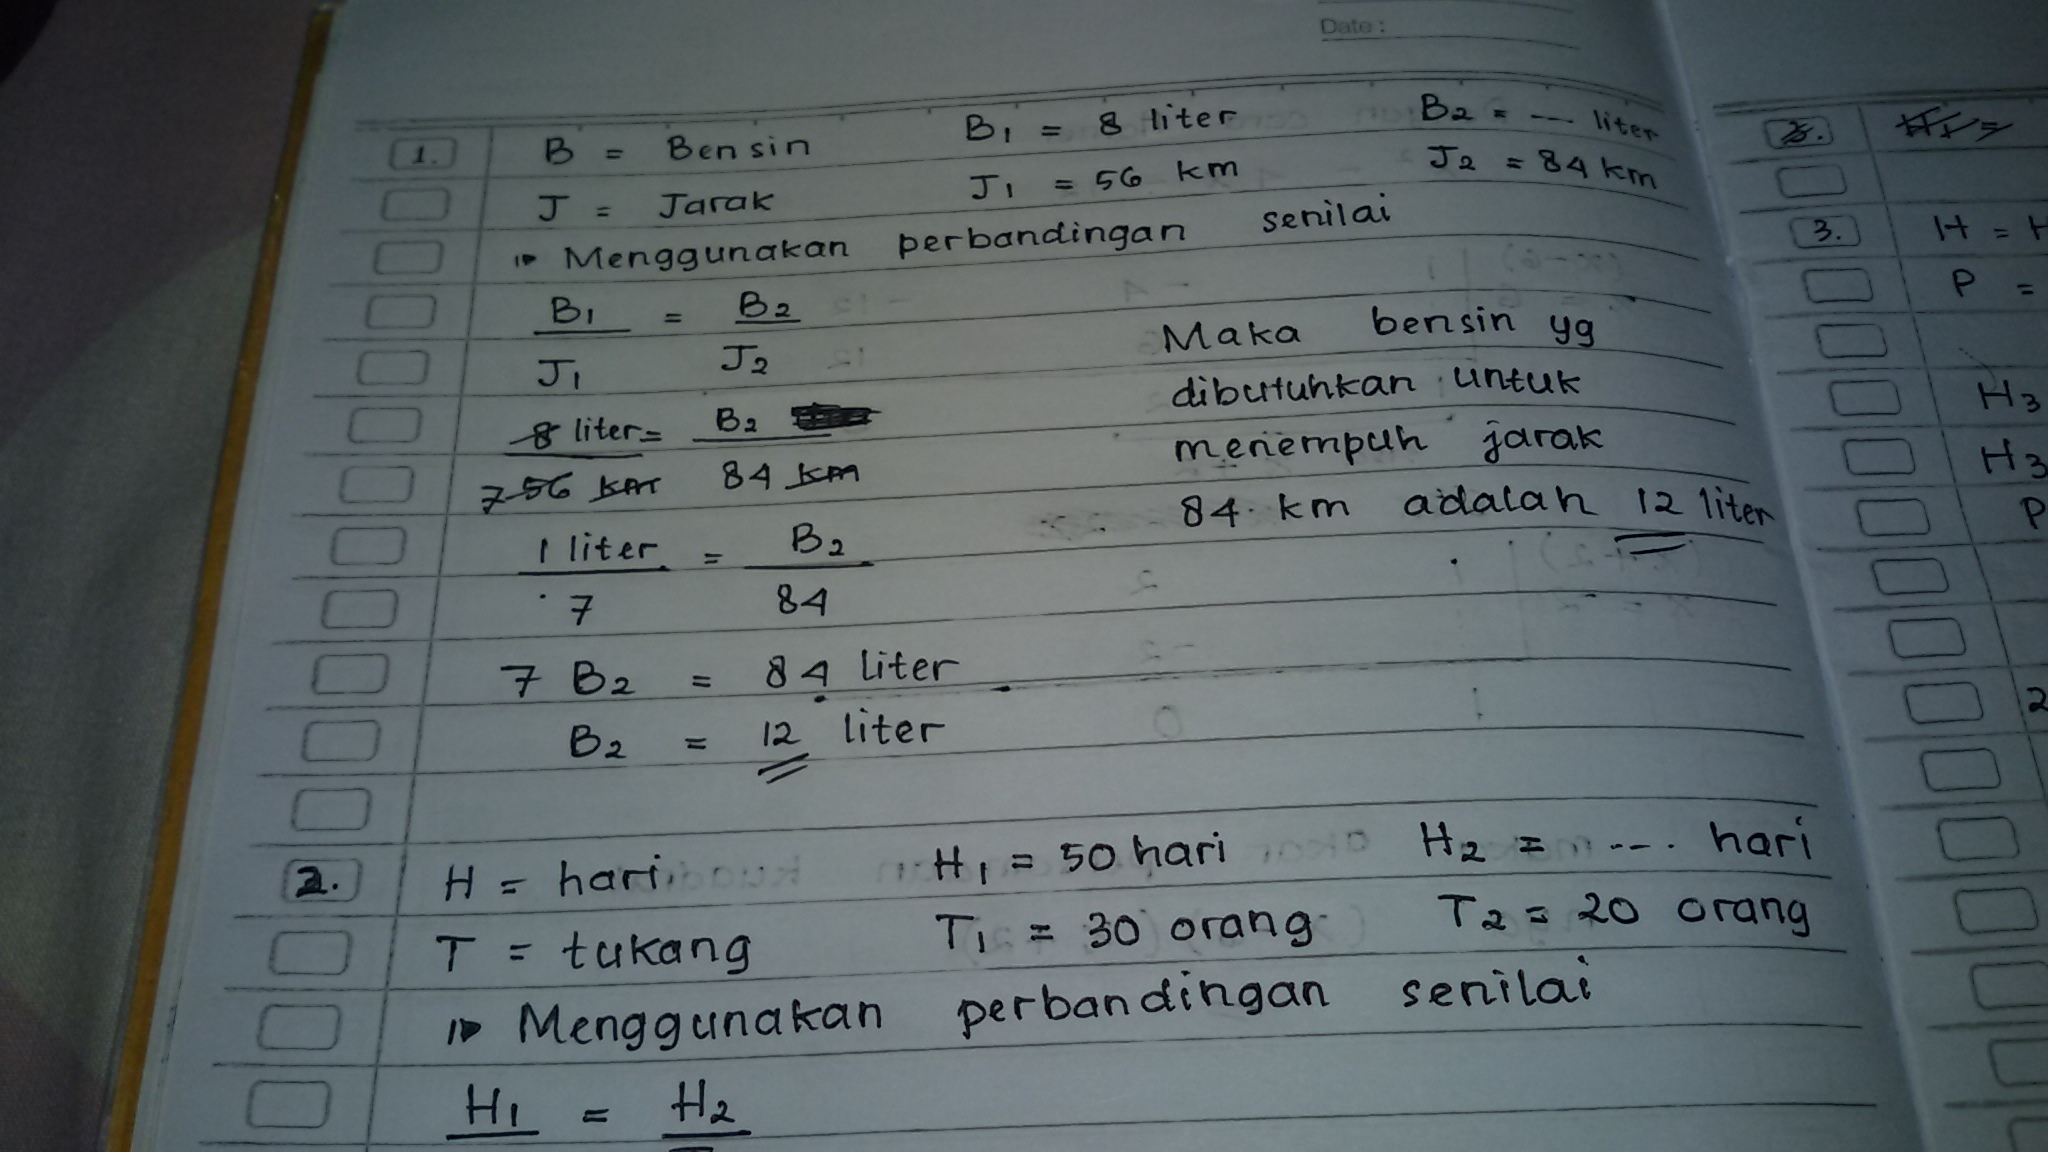 Date :
1. B = Bensin B1 = 8 liter B2 = .... liter
J = Jarak J1 = 56 km J2 = 84 km
Menggunakan perbandingan senilai
B1 = B2
J1 J2
8 liter = B2
7 56 km 84 km
1 liter = B2
7 84
7 B2 = 84 liter
B2 = 12 liter
Maka bensin yg
dibutuhkan untuk
menempuh jarak
84 km adalah 12 liter
2. H = hari H1 = 50 hari H2 = .... hari
T = tukang T1 = 30 orang T2 = 20 orang
Menggunakan perbandingan senilai
H1 = H2
3. H =
P =
H3
H3
P
2